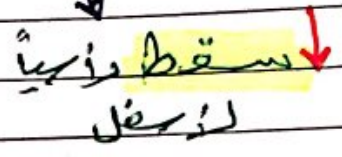 سقط رأسياً
لأسفل